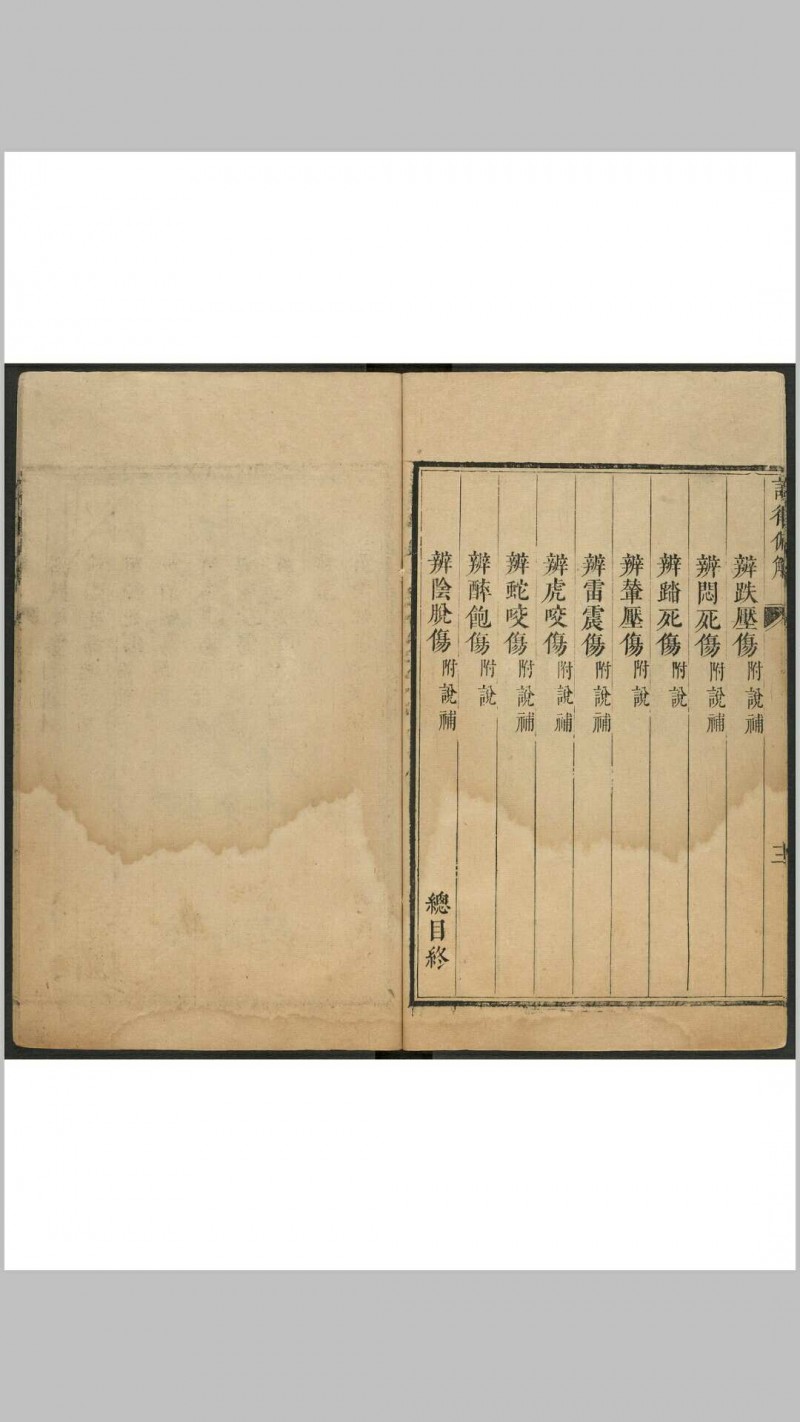 辨跌壓傷附說補
辨悶死傷附說補
辨踏死傷附說
辨輦壓傷附說
辨雷震傷附說補
辨虎咬傷附說補
辨蛇咬傷附說補
辨醉飽傷附說
辨陰脫傷附說補
總目終